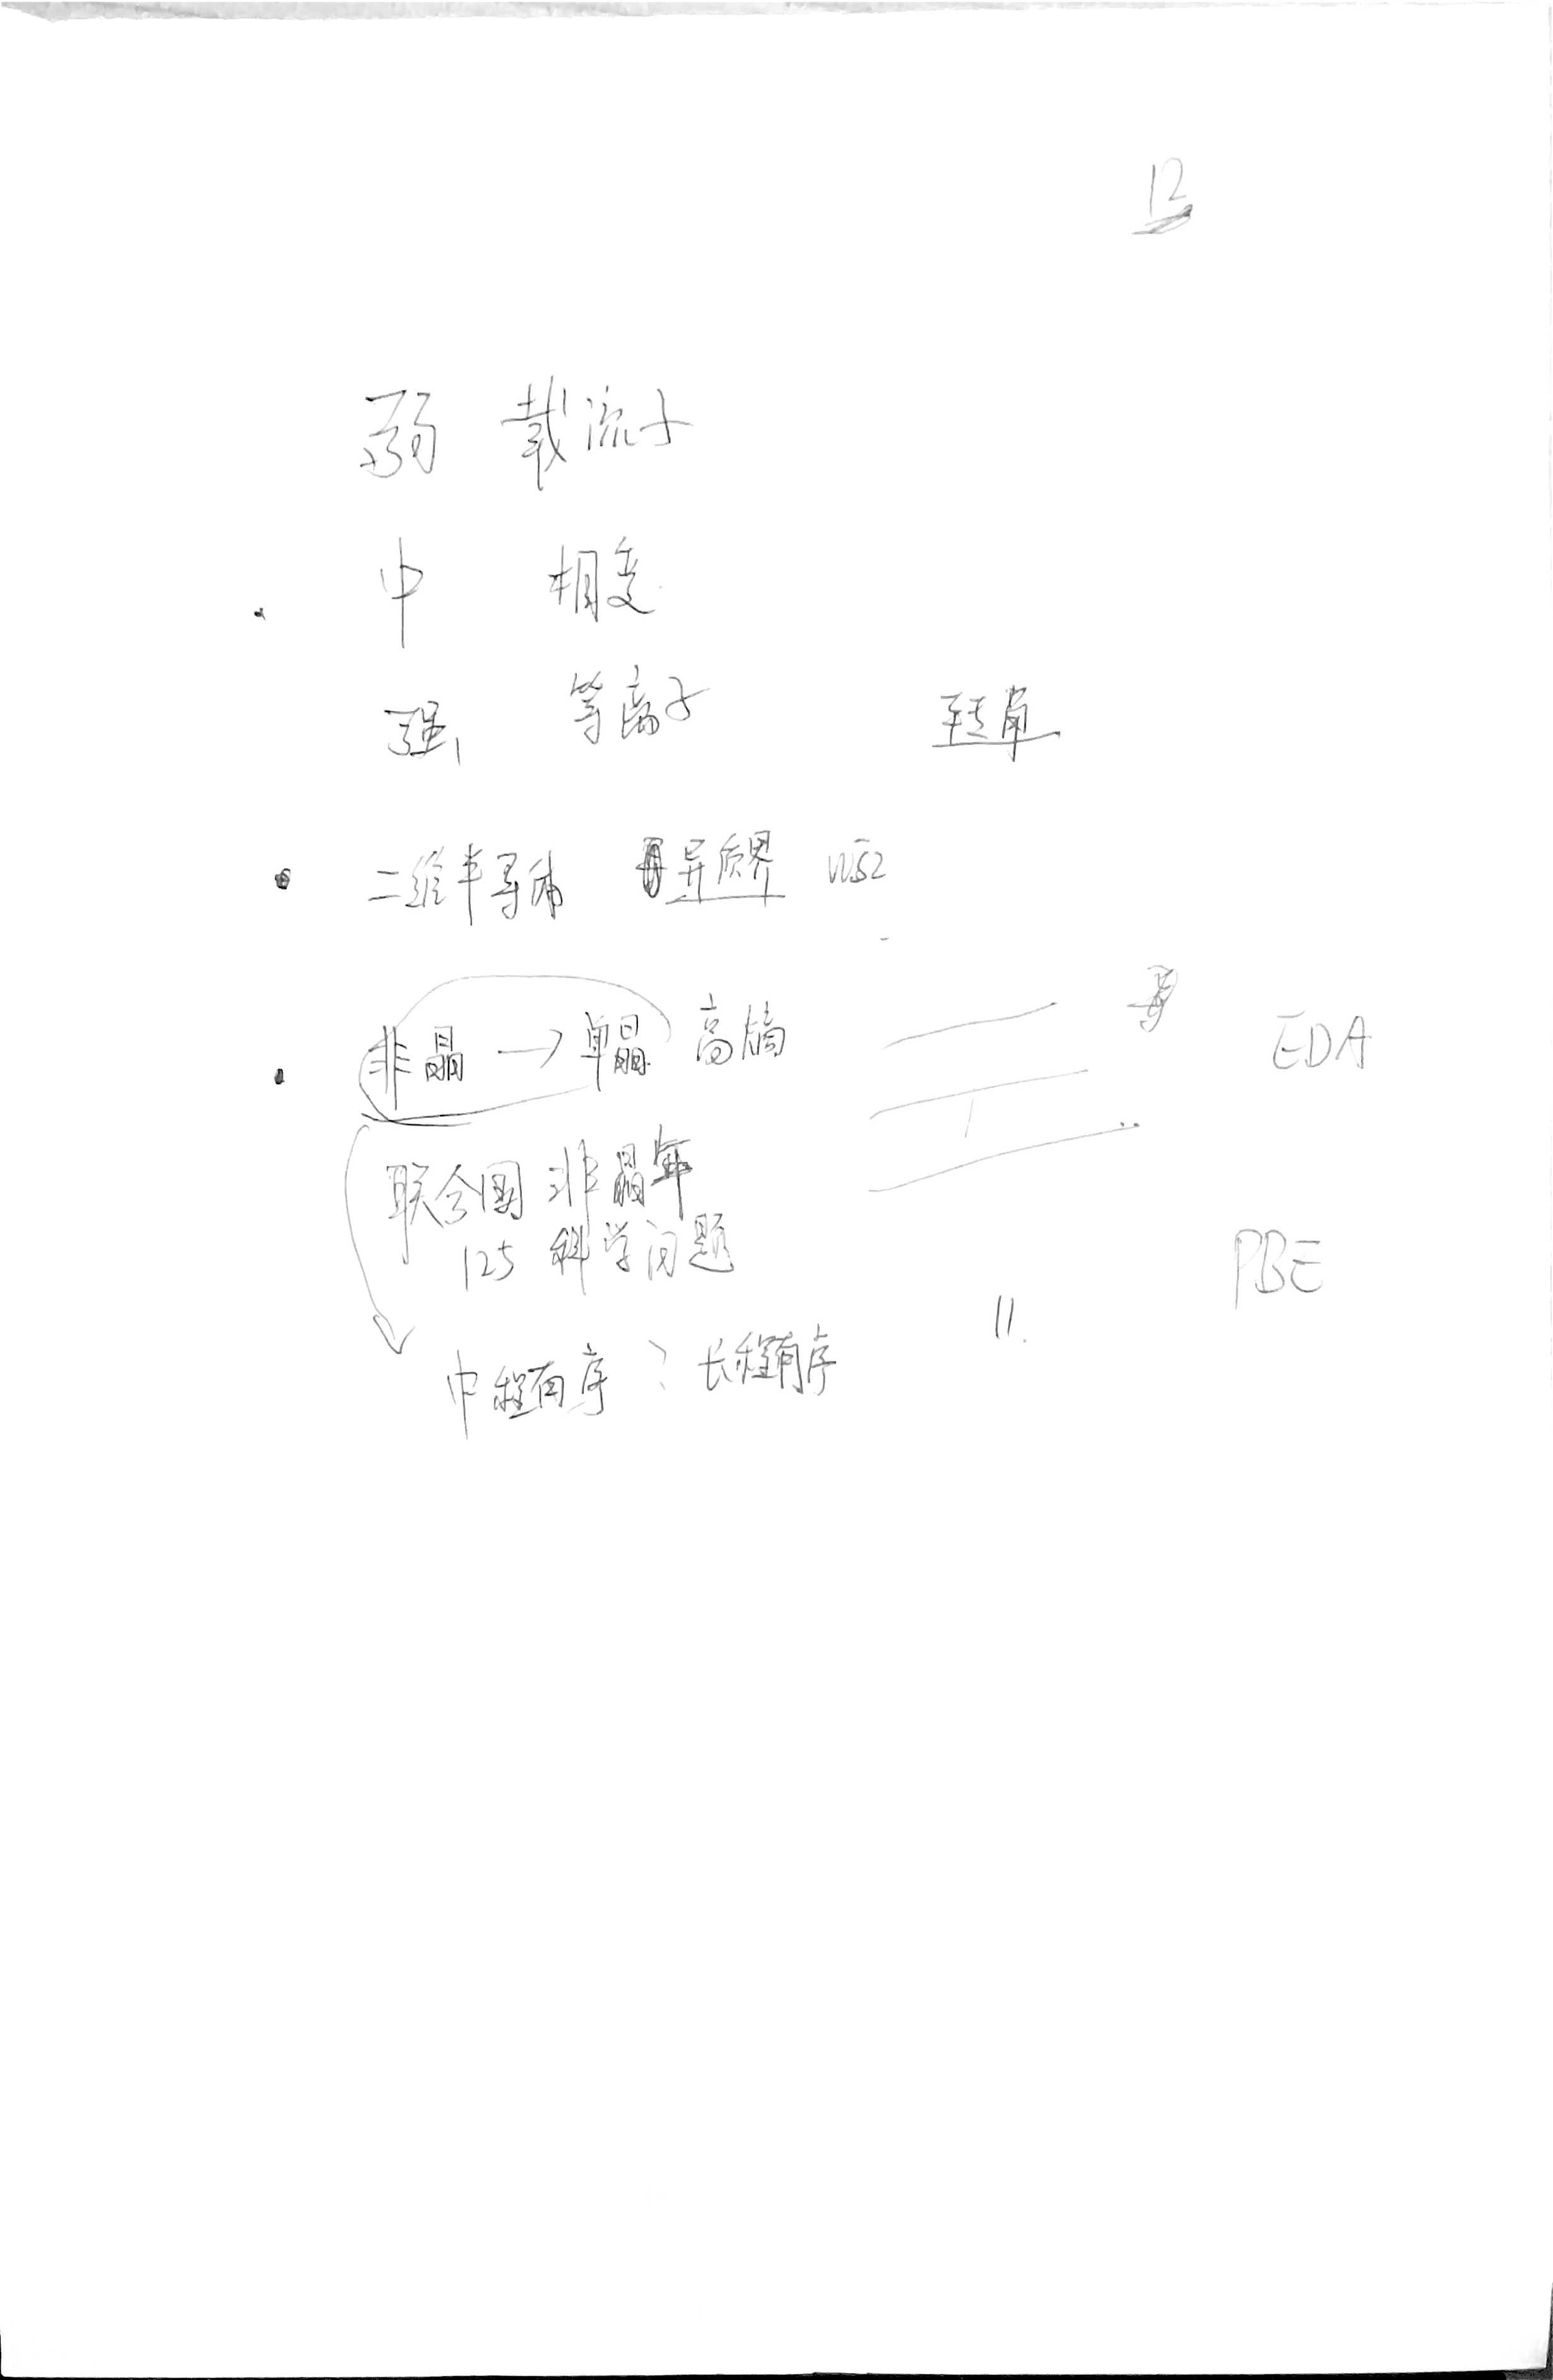 12
弱 载流子
中 相变
强 等离子
二维半导体 异质界 WS2
非晶 → 单晶 高熵
EDA
联合国 非晶年
125 科学问题
PBE
11.
中程有序 ? 长程有序